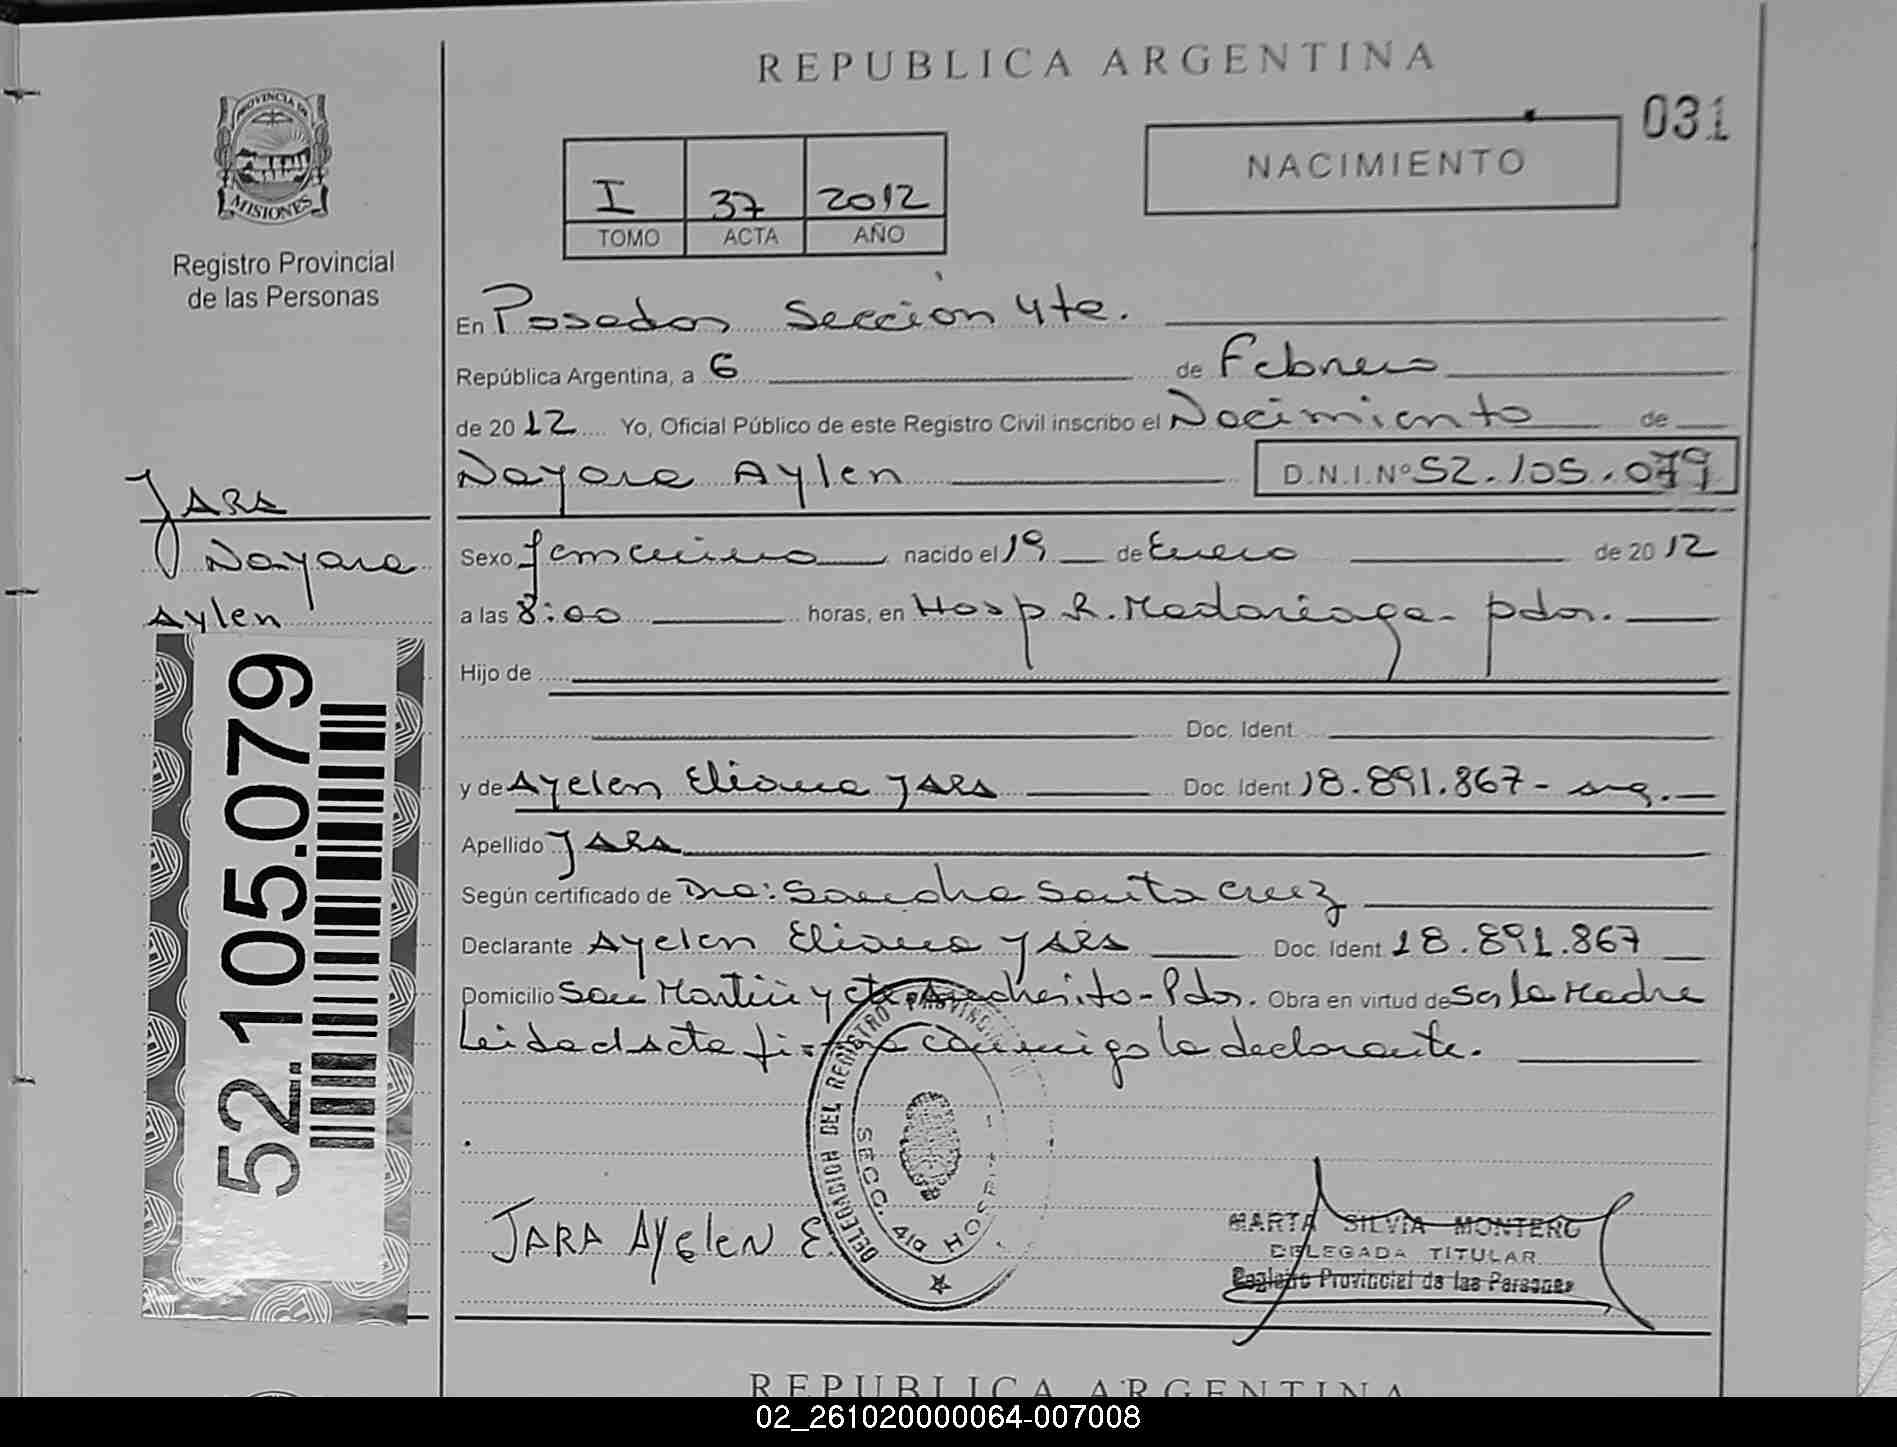 REPUBLICA ARGENTINA
031
NACIMIENTO
I 37 2012
TOMO ACTA AÑO
PROVINCIA DE
MISIONES
Registro Provincial
de las Personas
En Posadas Sección 4ta.
República Argentina, a 6 de Febrero
de 2012 Yo, Oficial Público de este Registro Civil inscribo el Nacimiento de
Nayara Aylen D.N.I.Nº 52.105.079
JARA
Nayara
Aylen
52.105.079
Sexo femenino nacido el 19 de Enero de 2012
a las 8:00 horas, en Hosp R. Madariaga - pdas.
Hijo de
Doc. Ident.
y de Ayelen Eliana JARA Doc. Ident 18.891.867 - arg.
Apellido JARA
Según certificado de Dra: Sandra Santa Cruz
Declarante Ayelen Eliana JARA Doc. Ident 18.891.867
Domicilio San Martin y - Pdas. Obra en virtud de Ser la Madre
Leida el Acta conmigo la declarante.
DELEGACION DEL REGISTRO PROVINCIAL
SECC. 4ta HOSP
JARA AyElEN E.
MARTA SILVIA MONTERO
DELEGADA TITULAR
Registro Provincial de las Personas
REPUBLICA ARGENTINA
02_261020000064-007008